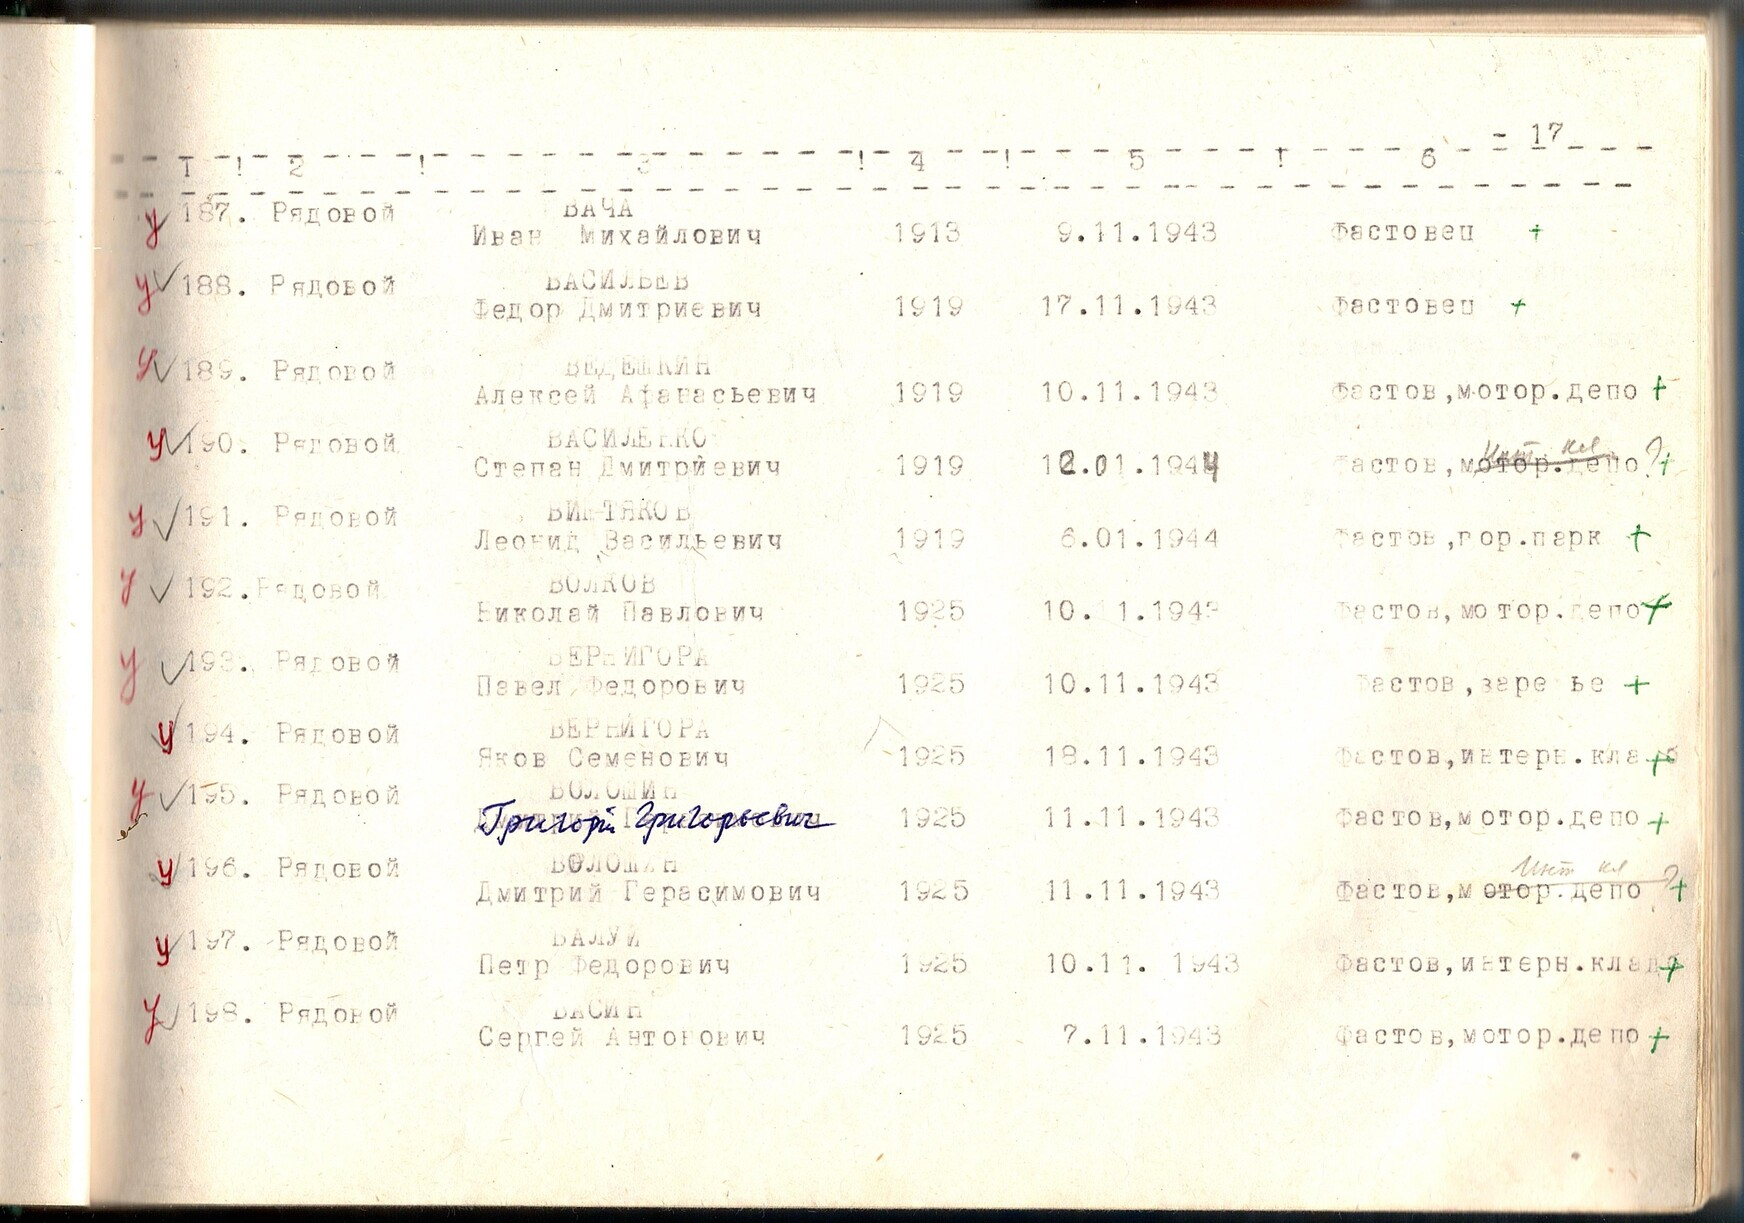 - 17
1 ! 2 ! 3 ! 4 ! 5 ! 6
у 187. Рядовой ВАЧА
Иван Михайлович 1913 9.11.1943 Фастовец +
у 188. Рядовой ВАСИЛЬЕВ
Федор Дмитриевич 1919 17.11.1943 Фастовец +
у 189. Рядовой ВЕДЕШКИН
Алексей Афанасьевич 1919 10.11.1943 Фастов,мотор.депо +
у 190. Рядовой ВАСИЛЕНКО Инт кл ?
Степан Дмитрйевич 1919 12.01.1944 Фастов,мотор.депо +
у 191. Рядовой
Леонид Васильевич 1919 6.01.1944 Фастов,гор.парк +
у 192.Рядовой ВОЛКОВ
Николай Павлович 1925 10. 1.1943 Фастов,мотор.депо +
у 193. Рядовой ВЕРНИГОРА
Павел Федорович 1925 10.11.1943 Фастов,заре ье +
у 194. Рядовой ВЕРНИГОРА
Яков Семенович 1925 18.11.1943 Фастов,интерн.клад +
у 195. Рядовой ВОЛОШИН
Григорій Григорьевич 1925 11.11.1943 Фастов,мотор.депо +
у 196. Рядовой ВОЛОШИН Инт кл ?
Дмитрий Герасимович 1925 11.11.1943 Фастов,мотор.депо +
у 197. Рядовой ВАЛУЙ
Петр Федорович 1925 10.11. 1943 Фастов,интерн.клад +
у 198. Рядовой ВАСИН
Сергей Антонович 1925 7.11.1943 Фастов,мотор.депо +